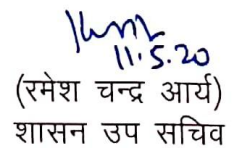 11.5.20
(रमेश चन्द्र आर्य)
शासन उप सचिव